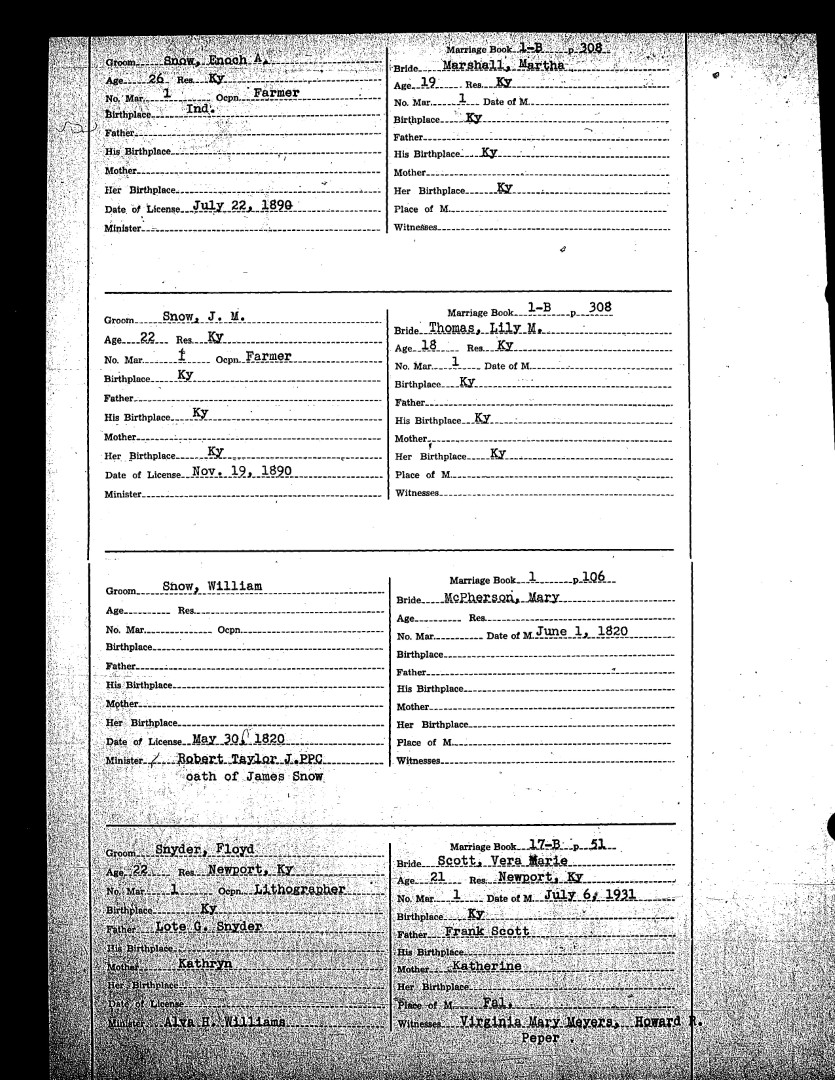 Marriage Book 1-B p 308
Groom Snow, Enoch A. Bride Marshall, Martha
Age 26 Res Ky Age 19 Res Ky
No. Mar. 1 Ocpn. Farmer No. Mar. 1 Date of M.
Birthplace Ind. Birthplace Ky
Father Father
His Birthplace His Birthplace Ky
Mother Mother
Her Birthplace Her Birthplace Ky
Date of License July 22, 1890 Place of M.
Minister Witnesses
Marriage Book 1-B p 308
Groom Snow, J. M. Bride Thomas, Lily M.
Age 22 Res. Ky Age 18 Res. Ky
No. Mar. 1 Ocpn. Farmer No. Mar. 1 Date of M.
Birthplace Ky Birthplace Ky
Father Father
His Birthplace Ky His Birthplace Ky
Mother Mother
Her Birthplace Ky Her Birthplace Ky
Date of License Nov. 19, 1890 Place of M.
Minister Witnesses
Marriage Book 1 p. 106
Groom Snow, William Bride McPherson, Mary
Age Res. Age Res.
No. Mar. Ocpn. No. Mar. Date of M. June 1, 1820
Birthplace Birthplace
Father Father
His Birthplace His Birthplace
Mother Mother
Her Birthplace Her Birthplace
Date of License May 30, 1820 Place of M.
Minister Robert Taylor J.PPC Witnesses
oath of James Snow
Marriage Book 17-B p 51
Groom Snyder, Floyd Bride Scott, Vera Marie
Age 22 Res Newport, Ky Age 21 Res Newport, Ky
No. Mar 1 Ocpn. Lithographer No. Mar 1 Date of M. July 6, 1931
Birthplace Ky Birthplace Ky
Father Lote G. Snyder Father Frank Scott
His Birthplace His Birthplace
Mother Kathryn Mother Katherine
Her Birthplace Her Birthplace
Date of License Place of M. Fal.
Minister Alva H. Williams Witnesses Virginia Mary Meyers, Howard R.
Peper